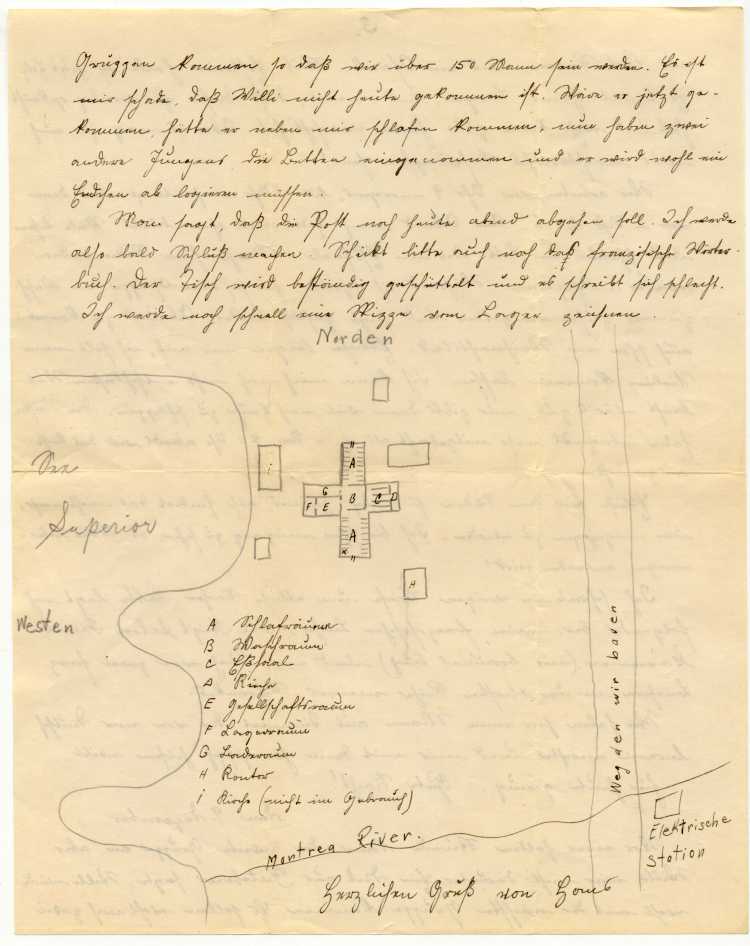 3.
Gruppen kommen so daß wir über 150 Mann sein werden. Es ist
mir schade, daß Willi nicht heute gekommen ist. Wäre er jetzt ge-
kommen, hätte er neben mir schlafen kommen, nun haben zwei
andere Jungens die Betten eingenommen und er wird wohl ein
Endchen ab logieren müssen.
Man sagt, daß die Post noch heute abend abgehen soll. Ich werde
also bald Schluß machen. Schickt bitte auch noch daß französische Wörter-
buch. Der Tisch wird beständig geschüttelt und es schreibt sich schlecht.
Ich werde noch schnell eine Skizze vom Lager zeichnen.
Norden
See
Superior
Westen
i
H
A
G
F
E
B
C
D
A
x
H
H
A Schlafräume
B Waschraum
C Eßsaal
D Küche
E Gesellschaftsraum
F Lagerraum
G Laderaum
H Kontor
i Kirche (nicht im Gebrauch)
Weg den wir bauen
Montrea River.
Elektrische
Station
Herzlichen Gruß von Hans